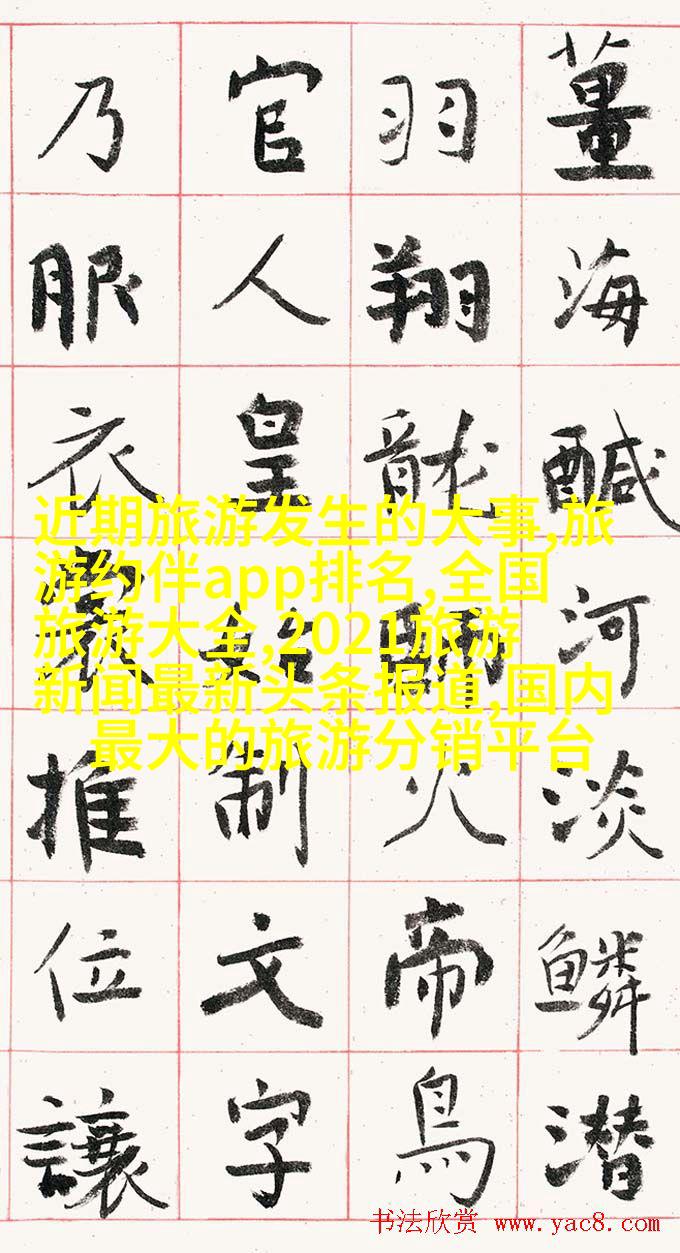 薑海醎河淡鳞潜
羽翔龍師火帝鳥
官人皇始制文字
乃服衣裳推位讓
近期旅游发生的大事,旅
游约伴app排名,全国
旅游大全,2021旅游
新闻最新头条报道,国内
最大的旅游分销平台
书法欣赏 www.yac8.com